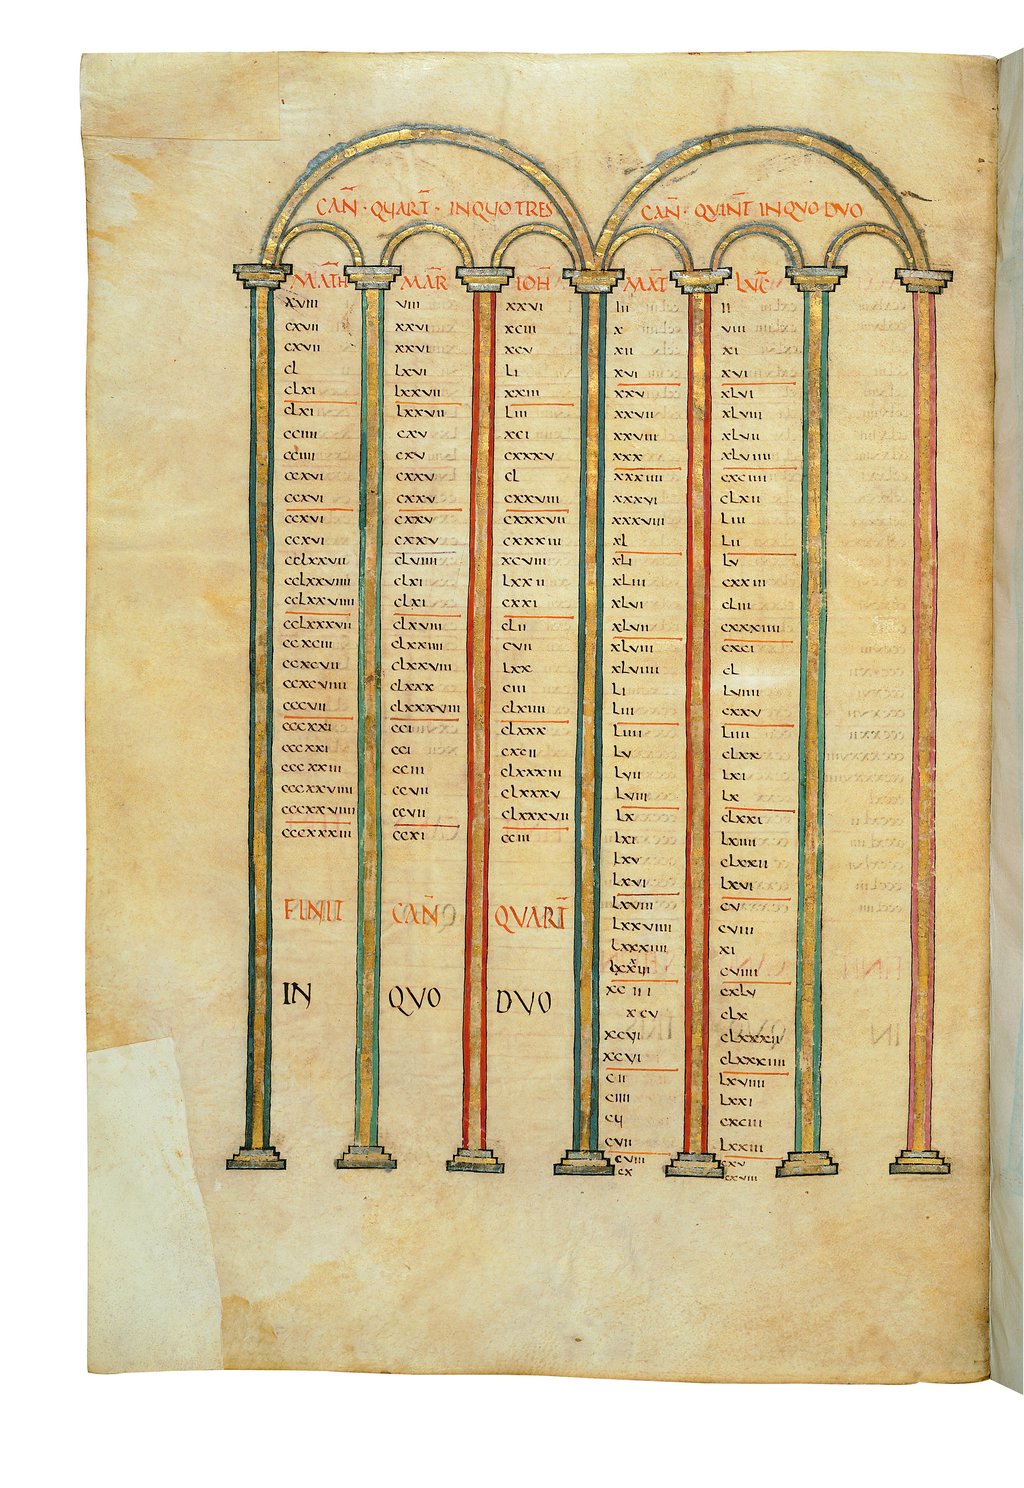 CAN · QUART · IN QUO TRES
MATH MAR IOH
xviii viii xxvi
cxvii xxvi xciii
cxvii xxvi xcv
cl lxvi li
clxi lxxvii xxiii
clxi lxxvii liii
cciiii cxv xci
cciiii cxv cxxxv
ccxvi cxxv cl
ccxvi cxxv cxxviii
ccxvi cxxv cxxxvii
ccxvi cxxv cxxxiii
cclxxvii clviiii xcviii
cclxxviiii clxi lxxii
cclxxviiii clxi cxxi
cclxxxvii clxviii clii
ccxciii clxxiiii cvii
ccxcvii clxxviii lxx
ccxcviiii clxxx ciii
cccvii clxxxviii clxiiii
cccxxi cci clxxx
cccxxi cci cxcii
cccxxiii cciii clxxxiii
cccxxviiii ccvii clxxxv
cccxxviiii ccvii clxxxvii
cccxxxiii ccxi cciii
FINIT CAN QUART
IN QUO DUO
CAN · QUINT IN QUO DUO
MAT LUC
iii ii
x viii
xii xi
xvi xvi
xxv xlvi
xxvii xlviii
xxviii xlvii
xxx xlviiii
xxxiiii cxciiii
xxxvi clxii
xxxviii liii
xl lii
xli lv
xliii cxxiii
xlvi cliii
xlvii cxxxiiii
xlviii cxci
xlviiii cl
li lviiii
liii cxxv
liiii liiii
lv clxx
lvii lxi
lviii lx
lx clxxi
lxi lxiiii
lxv clxxii
lxvi lxvi
lxviii cv
lxxviiii cviii
lxxxiiii xi
cviiii
xciii cxlv
xcv clx
xcvi clxxxii
xcvi clxxxiiii
cii lxviiii
ciiii lxxi
cv cxciii
cvii lxxiii
cviii cxv
cx cxviii